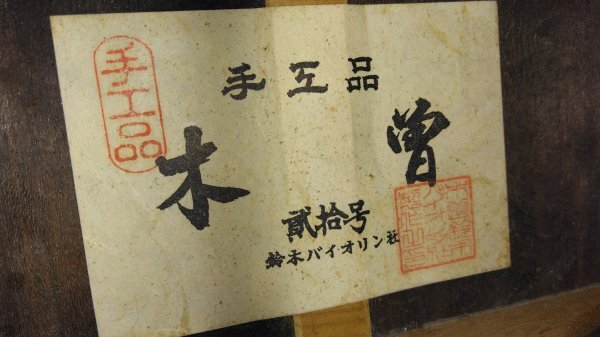 手工品
手工品
木曽
貳拾号
鈴木バイオリン社